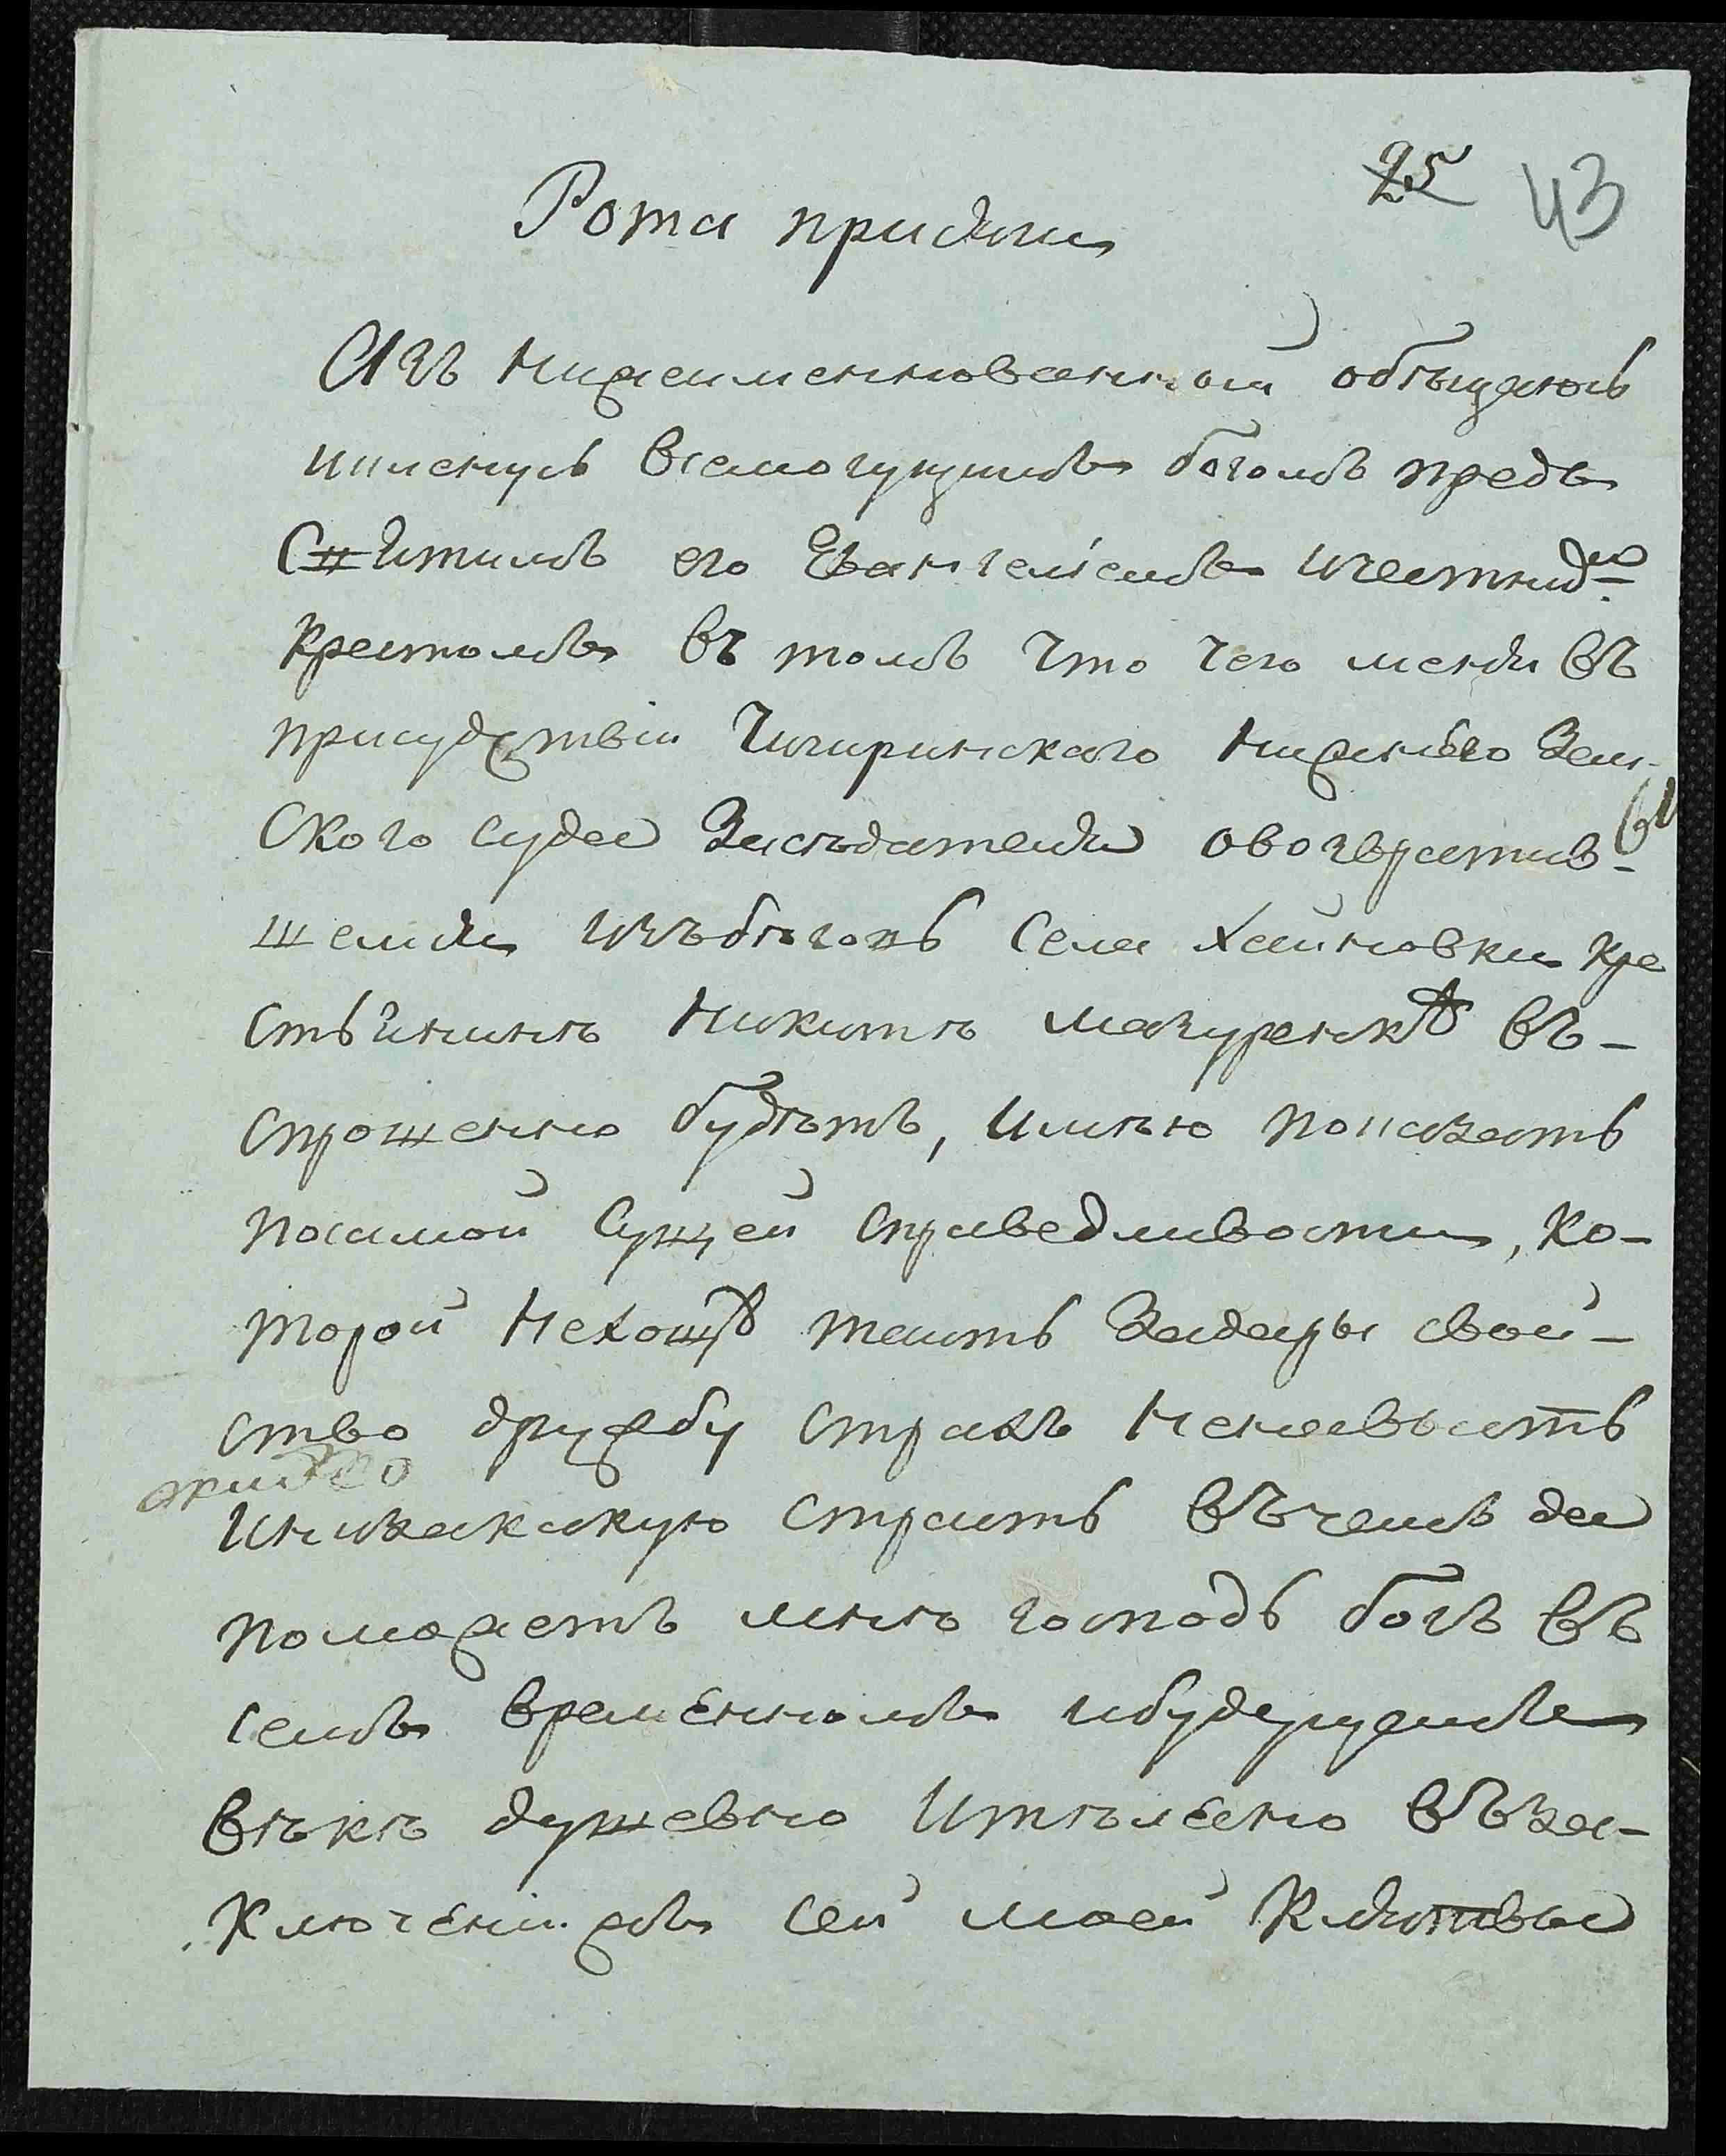 25 43
Рота присяги
Азъ нижеименнованный обѣщаюсь
иклянусь всемогущимъ богомъ предъ
Святимъ его Евангелiемъ ичестнимъ
крестомъ въ томъ что чего меня въ
присудствiи Чигиринскаго нижнѣго Зем-
ского суда Засѣдатели овозвратив-
шемся изъбѣговъ села Хайновки кре
стьянинѣ Никитѣ мазуренкѣ въ-
спрошенно будѣтъ, имѣю показать
посамой сущей справедливости, ко-
торой нехотя таить Задары свой-
ство дружбу страхъ ненависть
инизакакую страсть въчемъ да
поможетъ мнѣ господь богъ въ
семъ временномъ ибудущемъ
вѣкѣ душевно итѣлесно въза-
ключенiижъ сей моей клятвы